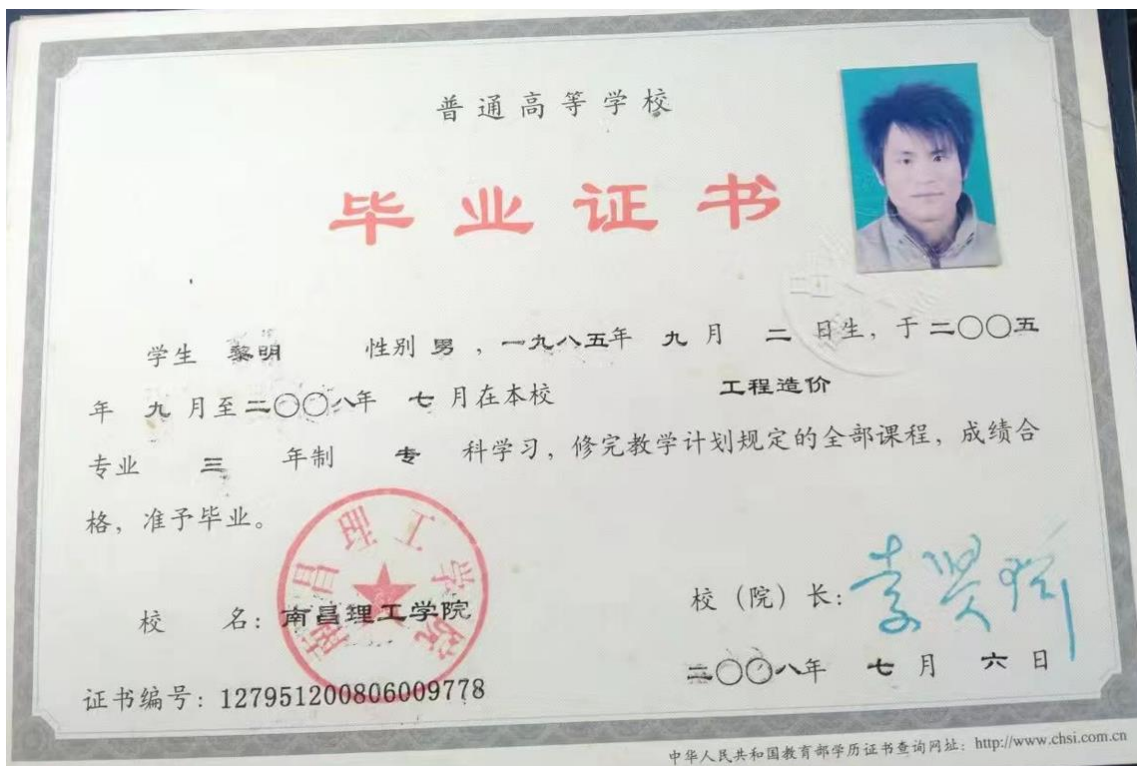 普通高等学校
毕业证书
学生 黎明 性别 男 ,一九八五年 九 月 二 日生,于二〇〇五
年 九 月至二〇〇八年 七 月在本校 工程造价
专业 三 年制 专 科学习,修完教学计划规定的全部课程,成绩合
格,准予毕业。
南昌理工学院
校 名:南昌理工学院
校(院)长:
二〇〇八年 七 月 六 日
证书编号:127951200806009778
中华人民共和国教育部学历证书查询网址:http://www.chsi.com.cn